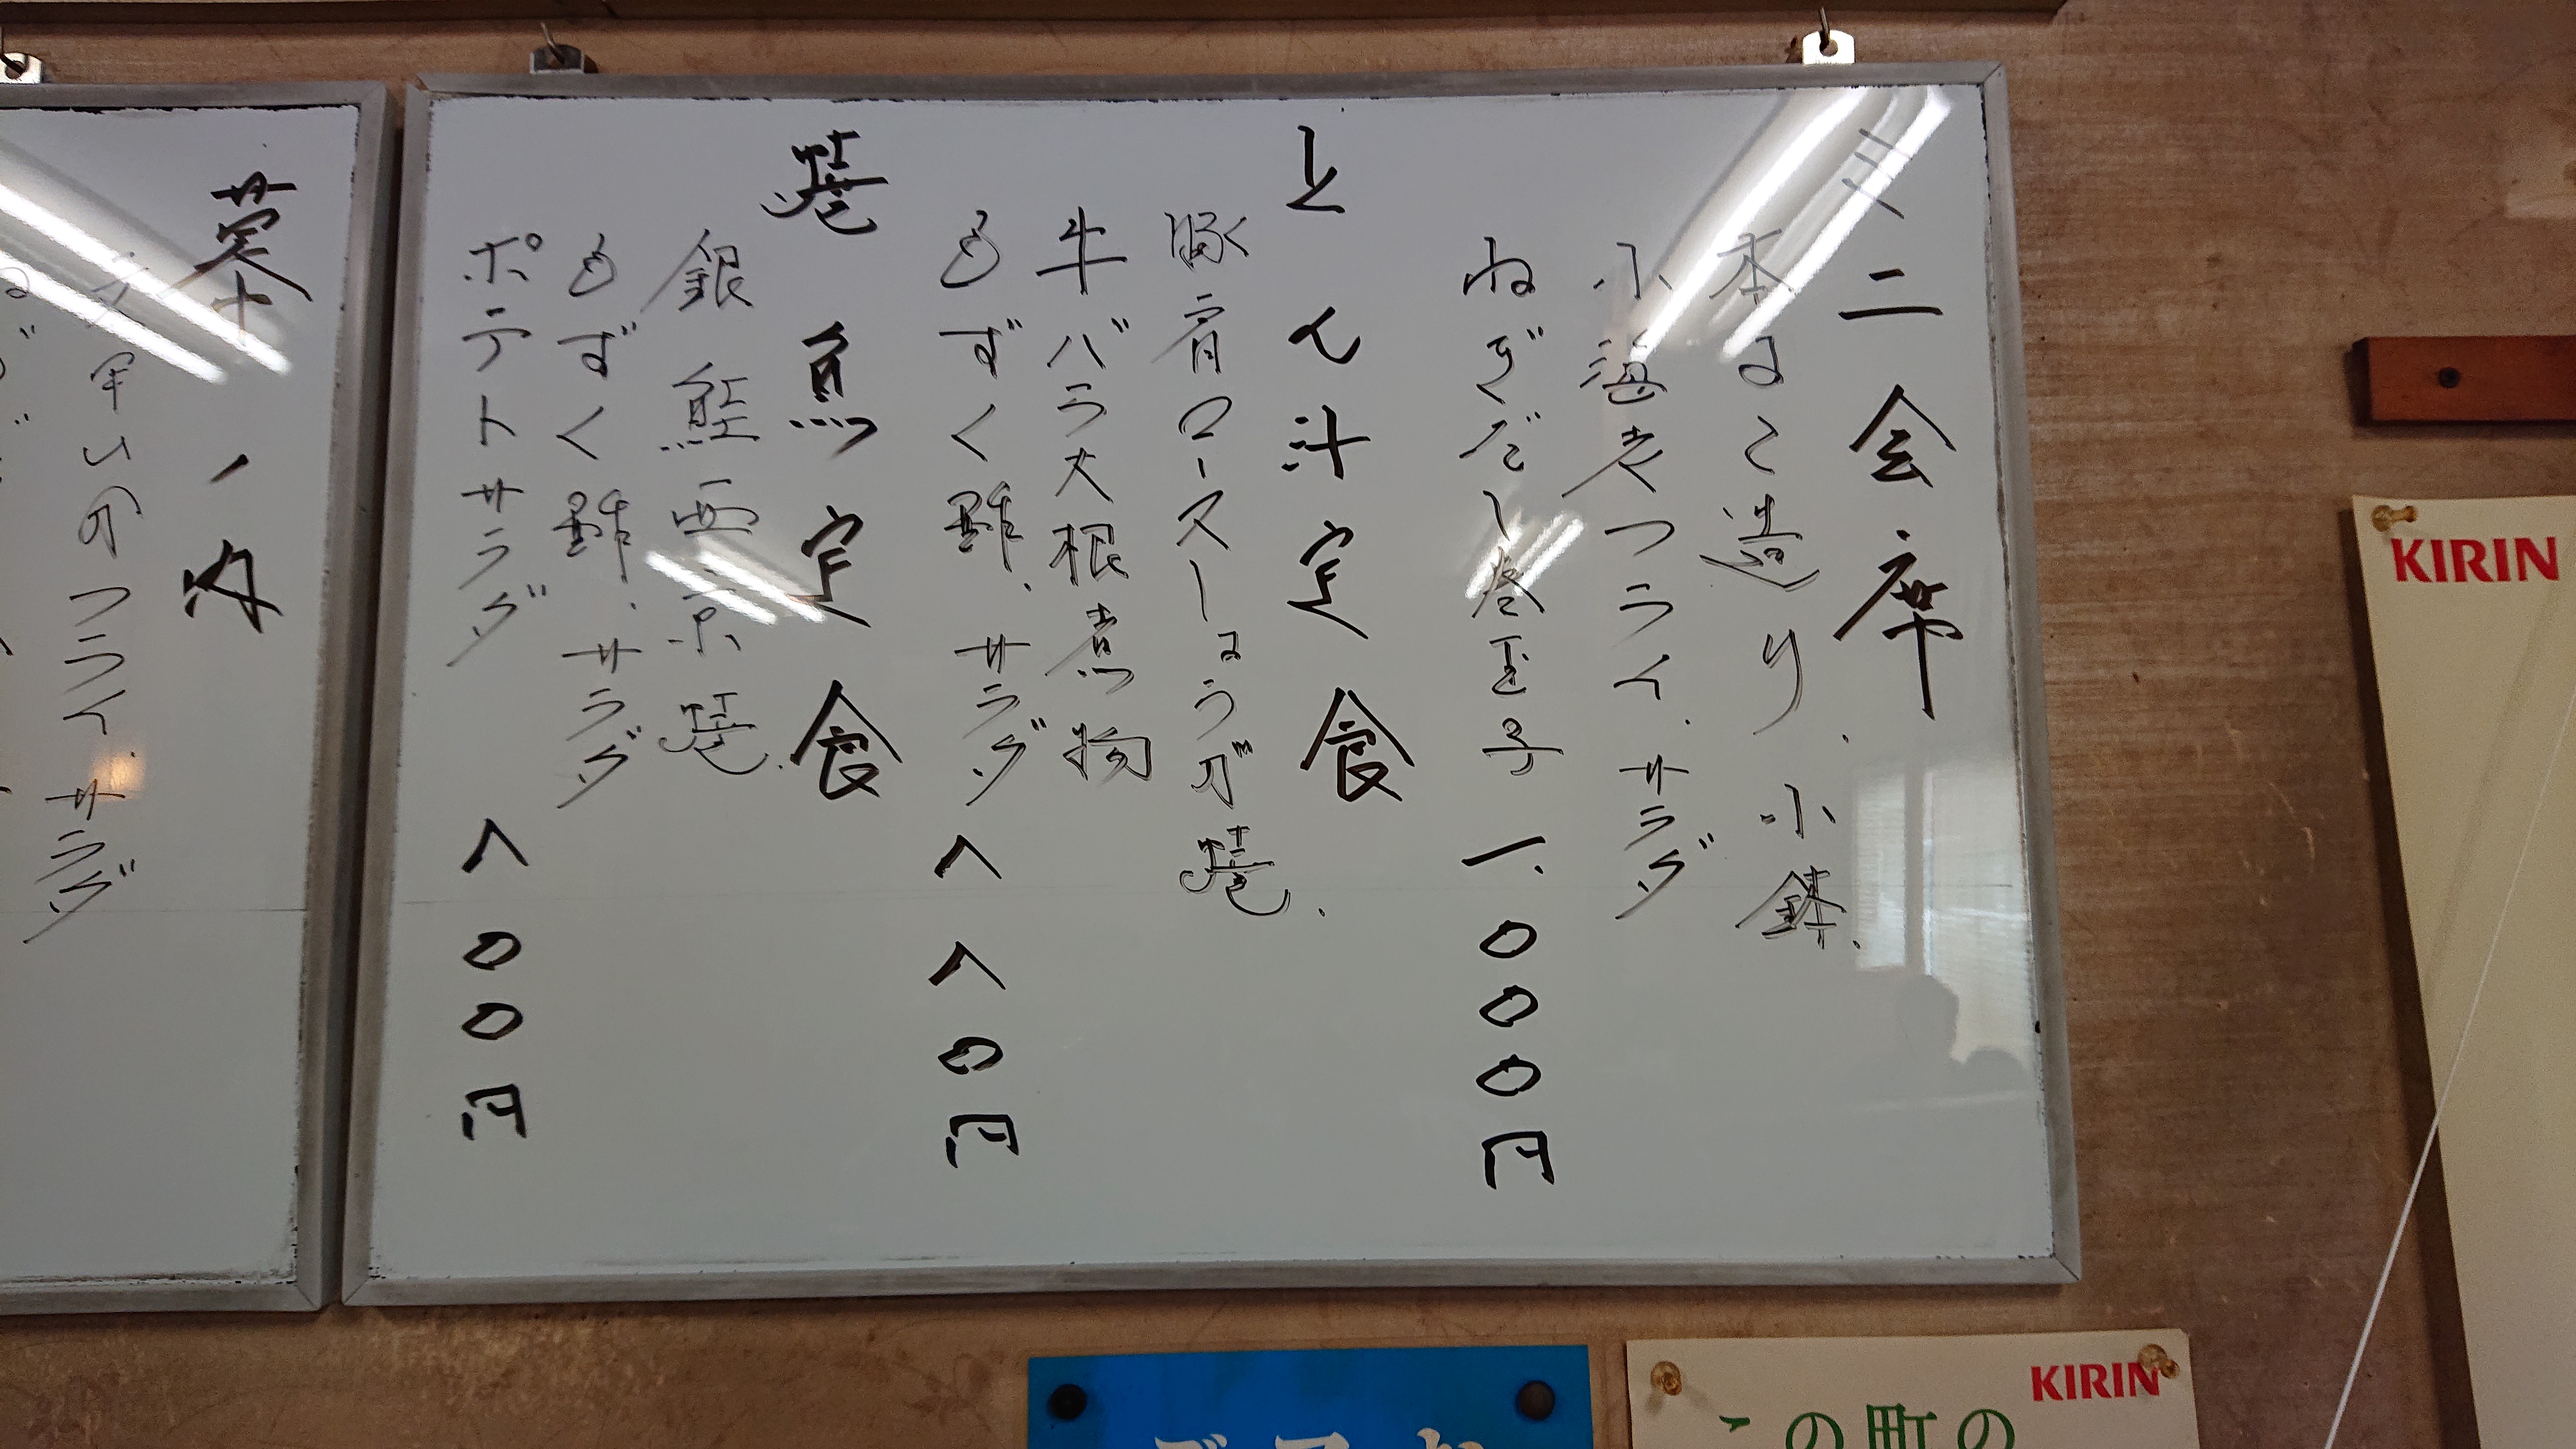 ミニ会席
本まぐ造り、小鉢、
小海老フライ、サラダ
ねぎだし巻玉子
一、〇〇〇円
とん汁定食
豚肩ロースしょうが焼、
牛バラ大根煮物
もずく酢、サラダ
八八〇円
焼魚定食
銀鮭西京焼、
もずく酢、サラダ
ポテトサラダ
八〇〇円
幕ノ内
フライ、サラダ
KIRIN
KIRIN
この町の